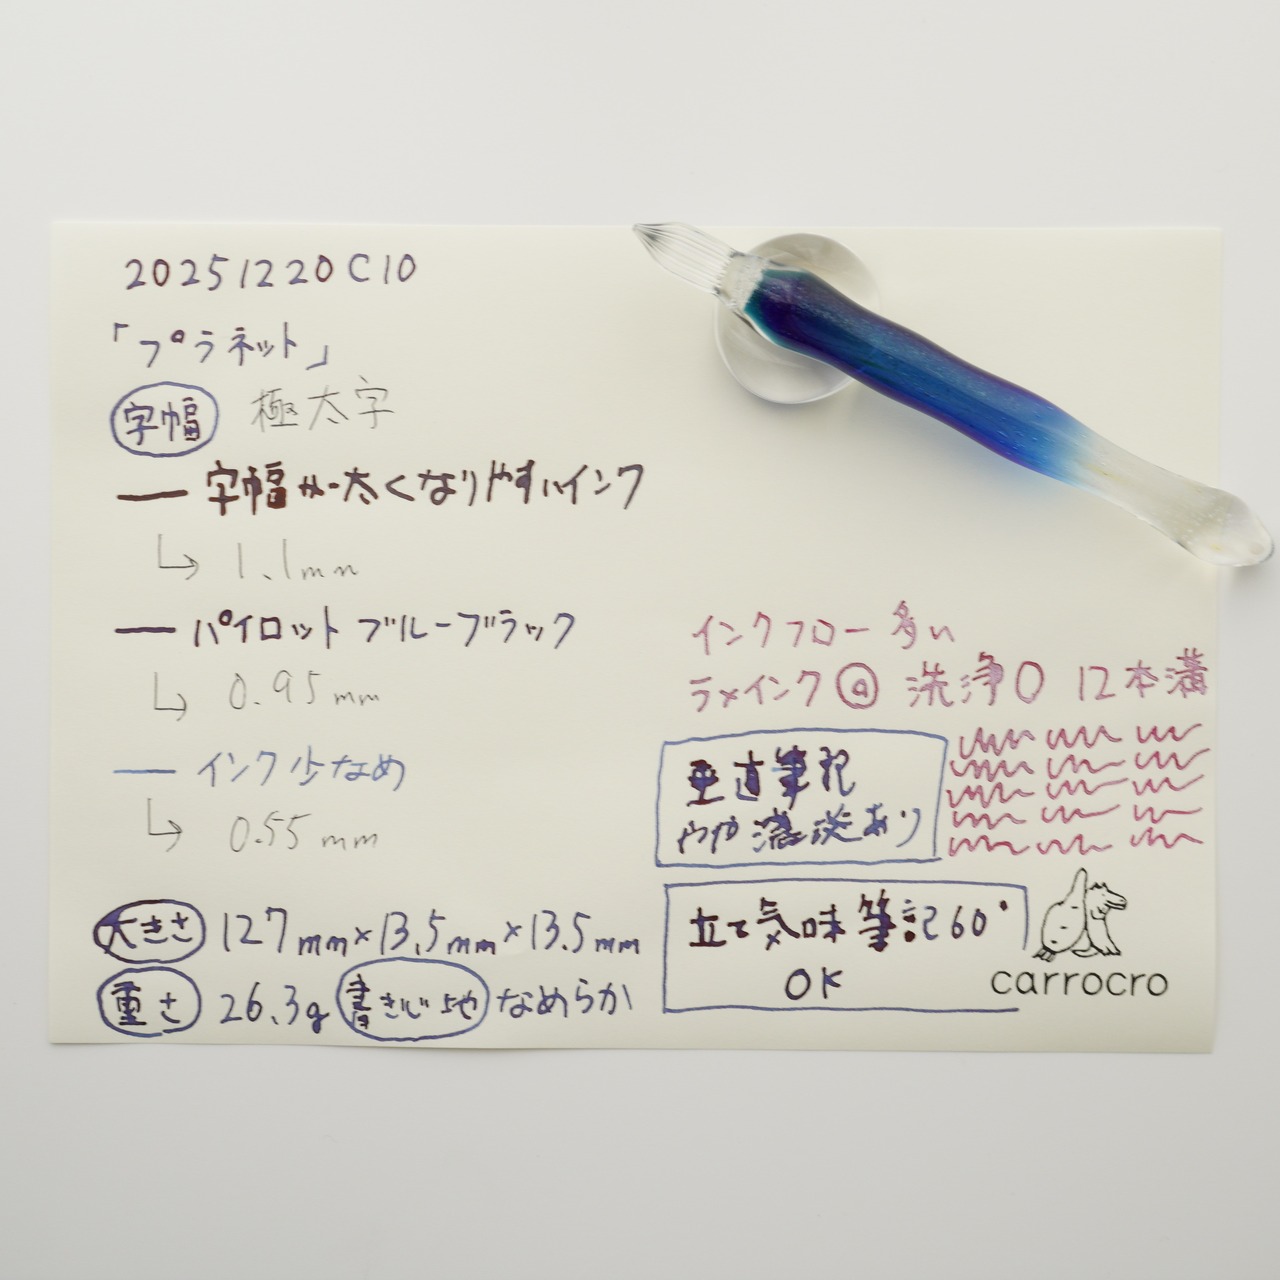 20251220C10
「プラネット」
字幅 極太字
字幅が太くなりやすいインク
1.1mm
パイロットブルーブラック
0.95mm
インク少なめ
0.55mm
大きさ 127mm×13.5mm×13.5mm
重さ 26.3g 書き心地 なめらか
インクフロー多い
ラメインク◎ 洗浄○ 12本溝
垂直筆記
やや濃淡あり
立て気味筆記60°
OK
carrocro